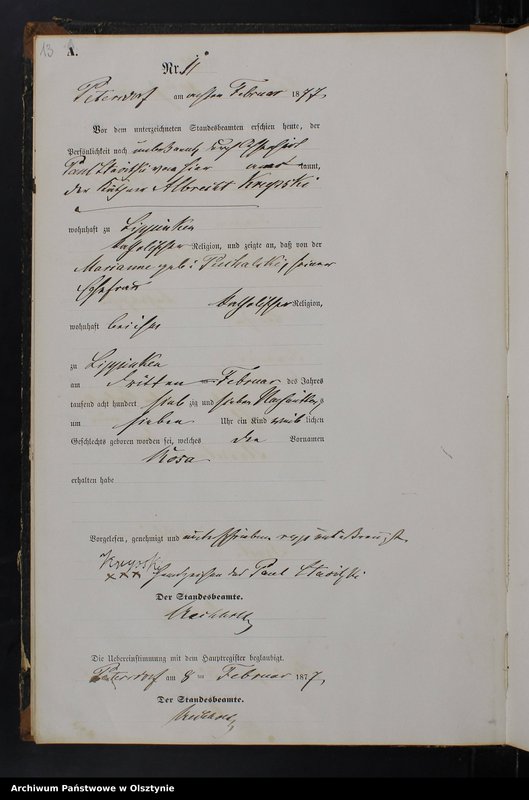 13
A.
Nr. 11
Petersdorf am achten Februar 1877
Vor dem unterzeichneten Standesbeamten erschien heute, der
Persönlichkeit nach unbekannt, durch
Paul von hier kannt,
der Albrecht Knyzski
wohnhaft zu Lippinken
katholischer Religion, und zeigte an, daß von der
Marianne geb: seiner
Ehefrau
katholischer Religion,
wohnhaft bei ihm
zu Lippinken
am dritten Februar des Jahres
tausend acht hundert siebzig und sieben Nachmittags
um sieben Uhr ein Kind weiblichen
Geschlechts geboren worden sei, welches den Vornamen
Rosa
erhalten habe
Vorgelesen, genehmigt und unterschrieben resp unterkreuzt
Knyzski
xxx Handzeichen des Paul
Der Standesbeamte.
Die Uebereinstimmung mit dem Hauptregister beglaubigt.
Petersdorf am 8 ten Februar 1877,
Der Standesbeamte.
Archiwum Państwowe w Olsztynie